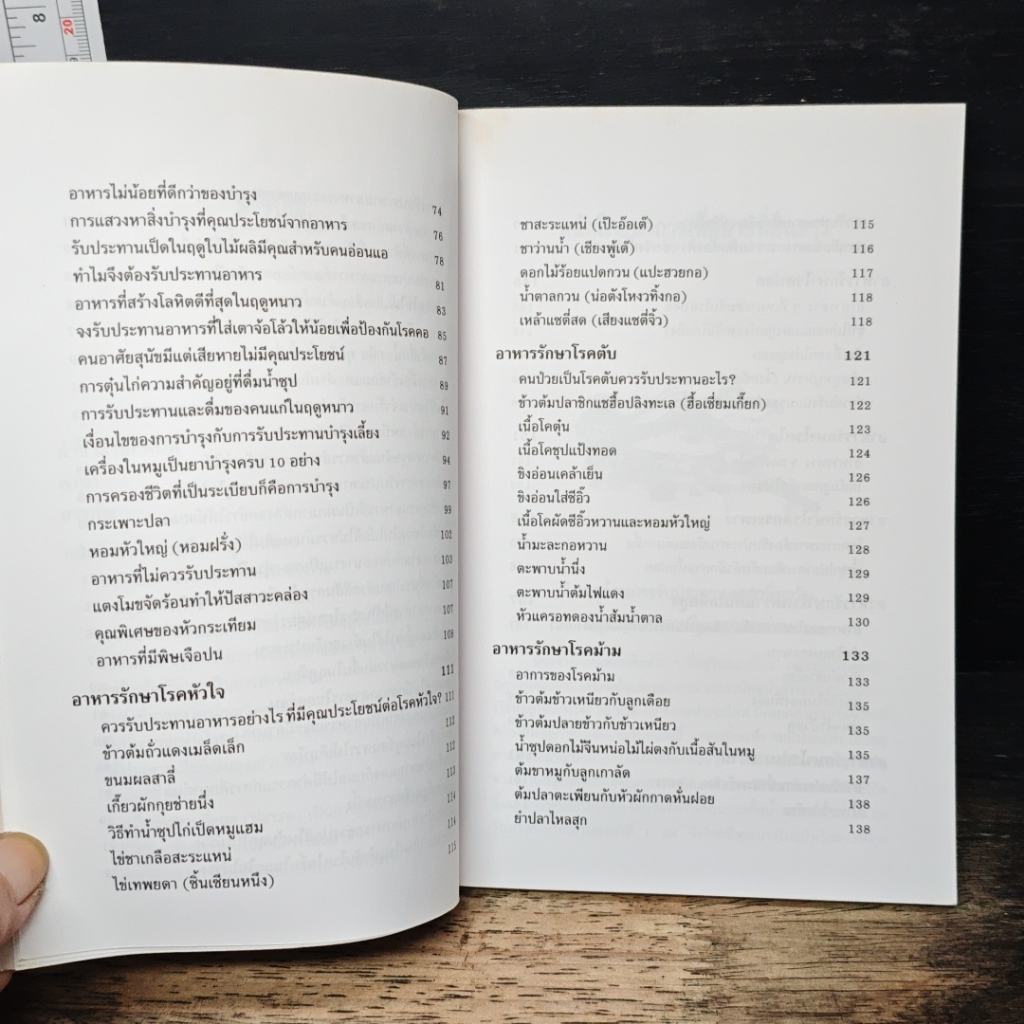 อาหารไม่น้อยที่ดีกว่าของบำรุง 74
การแสวงหาสิ่งบำรุงที่คุณประโยชน์จากอาหาร 76
รับประทานเป็ดในฤดูใบไม้ผลิมีคุณสำหรับคนอ่อนแอ 78
ทำไมจึงต้องรับประทานอาหาร 81
อาหารที่สร้างโลหิตดีที่สุดในฤดูหนาว 83
จงรับประทานอาหารที่ใส่เตาจ้อโล้วให้น้อยเพื่อป้องกันโรคคอ 85
คนอาศัยสุนัขมีแต่เสียหายไม่มีคุณประโยชน์ 87
การตุ๋นไก่ความสำคัญอยู่ที่ดื่มน้ำซุป 89
การรับประทานและดื่มของคนแก่ในฤดูหนาว 91
เงื่อนไขของการบำรุงกับการรับประทานบำรุงเลี้ยง 92
เครื่องในหมูเป็นยาบำรุงครบ 10 อย่าง 94
การครองชีวิตที่เป็นระเบียบก็คือการบำรุง 97
กระเพาะปลา 99
หอมหัวใหญ่ (หอมฝรั่ง) 102
อาหารที่ไม่ควรรับประทาน 103
แตงโมขจัดร้อนทำให้ปัสสาวะคล่อง 107
คุณพิเศษของหัวกระเทียม 107
อาหารที่มีพิษเจือปน 108
อาหารรักษาโรคหัวใจ 111
ควรรับประทานอาหารอย่างไร ที่มีคุณประโยชน์ต่อโรคหัวใจ? 111
ข้าวต้มถั่วแดงเมล็ดเล็ก 112
ขนมผลสาลี่ 112
เกี๊ยวผักกุยช่ายนึ่ง 113
วิธีทำน้ำซุปไก่เป็ดหมูแฮม 114
ไข่ชาเกลือสะระแหน่ 114
ไข่เทพยดา (ซิ้นเซียนหนึง) 115
ชาสะระแหน่ (เป๊ะอ๊อเต๊) 115
ชาว่านน้ำ (เซียงพู้เต๊) 116
ดอกไม้ร้อยแปดกวน (แปะฮวยกอ) 117
น้ำตาลกวน (น่อตังโหงวทิ้งกอ) 118
เหล้าแซตี่สด (เสียงแซตี่จิ้ว) 118
อาหารรักษาโรคตับ 121
คนป่วยเป็นโรคตับควรรับประทานอะไร? 121
ข้าวต้มปลาชิกแชฮื้อปลิงทะเล (ฮื้อเซี่ยมเกี๊ยก) 122
เนื้อโคตุ๋น 123
เนื้อโคชุปแป้งทอด 124
ขิงอ่อนเคล้าเย็น 126
ขิงอ่อนใส่ซีอิ๊ว 126
เนื้อโคผัดซีอิ๊วหวานและหอมหัวใหญ่ 127
น้ำมะละกอหวาน 128
ตะพาบน้ำนึ่ง 129
ตะพาบน้ำต้มไฟแดง 129
หัวแครอทดองน้ำส้มน้ำตาล 130
อาหารรักษาโรคม้าม 133
อาการของโรคม้าม 133
ข้าวต้มข้าวเหนียวกับลูกเดือย 135
ข้าวต้มปลายข้าวกับข้าวเหนียว 135
น้ำซุปดอกไม้จีนหน่อไม้ไผ่ตงกับเนื้อสันในหมู 135
ต้มขาหมูกับลูกเกาลัด 137
ต้มปลาตะเพียนกับหัวผักกาดหั่นฝอย 138
ยำปลาไหลสุก 138
8
20